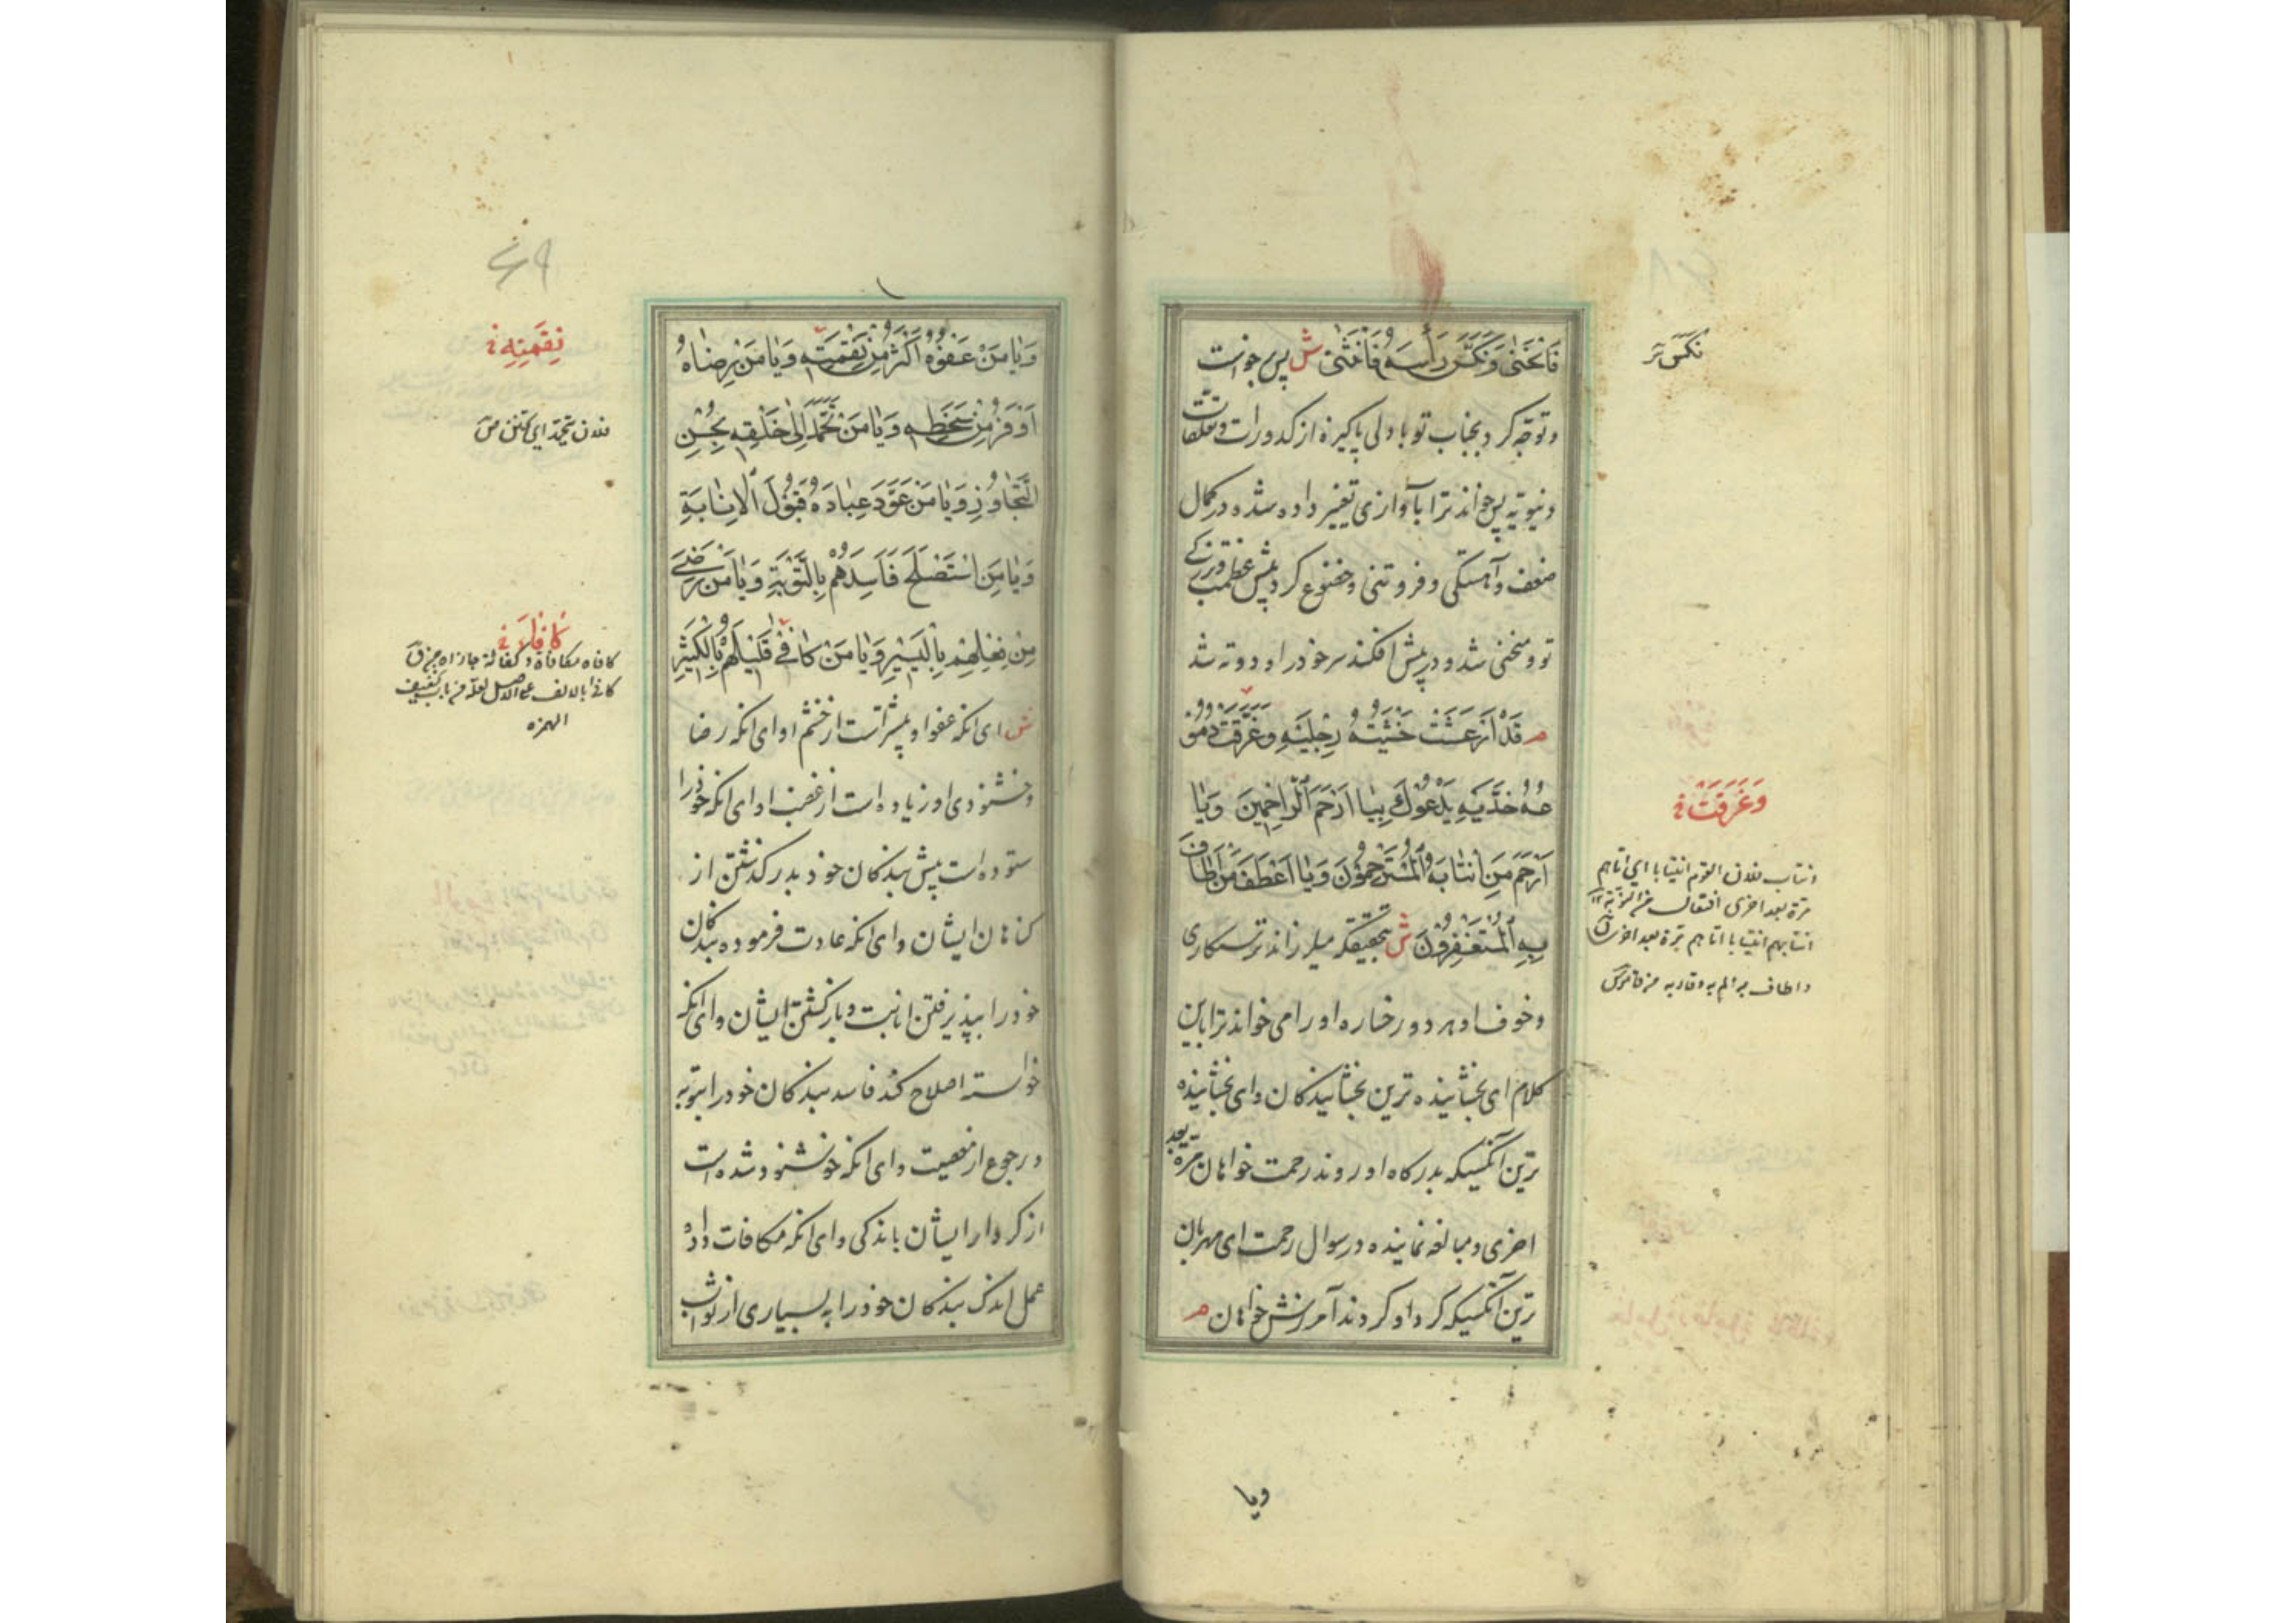 فَانْحَنىٰ وَنَكَّسَ رَأْسَهُ فَانْثَنىٰ ش پس برخواست
و توجّه کرد بجناب تو با دلی پاکیزه از کدورات و تعلقات
دنیویّه پس خواند ترا بآوازی تغییر داده شده در کمال
ضعف و آهستگی و فروتنی و خضوع کرد پیش عظمت و بزرگی
تو و منحنی شد و در پیش افکند سر خود را و دو ته شد
م قَدْ اَرْعَشَتْ خَشْيَتُهُ رِجْلَيْهِ وَغَرَّقَتْ دُمُوُ
عُهُ خَدَّيْهِ يَدْعُوكَ بِيٰا اَرْحَمَ الرّاحِمِينَ وَيٰا
اَرْحَمَ مَنِ انْتٰابَهُ الْمُسْتَرْحِمُونَ وَيٰا اَعْطَفَ مَنْ اَطٰافَ
بِهِ الْمُسْتَغْفِرُونَ ش بتحقیقکه میلرزاند ترسکاری
و خوف او هر دو رخساره او را می خواند ترا باین
کلام ای بخشاینده ترین بخشایندکان و ای بخشاینده
ترین آنکسیکه بدرکاه او روند رحمت خواهان مرّة بعد
اخری و مبالغه نماینده در سوال رحمت ای مهربان
ترین آنکسیکه کرد او کردند آمرزش خواهان م
نکس
وَغَرَقَتْ
انتاب فلان القوم انتیابا ای اتاهم
مرّة بعد اخری افتعال من النوبة
انتابهم انتیابا اتاهم مرّة بعد اخری
و اطاف به الم به و قاربه
ویا
وَيٰا مَنْ عَفْوُهُ اَكْثَرُ مِنْ نِقْمَتِهِ وَيٰا مَنْ رِضٰاهُ
اَوْفَرُ مِنْ سَخَطِهِ وَيٰا مَنْ تَحَمَّدَ اِلىٰ خَلْقِهِ بِحُسْنِ
التَّجٰاوُزِ وَيٰا مَنْ عَوَّدَ عِبٰادَهُ قَبُولَ الْاِنٰابَةِ
وَيٰا مَنِ اسْتَصْلَحَ فَاسِدَهُمْ بِالتَّوْبَةِ وَيٰا مَنْ رَضِيَ
مِنْ فِعْلِهِمْ بِالْيَسِيْرِ وَيٰا مَنْ كٰافىٰ قَلِيْلَهُمْ بِالْكَثِيْرِ
ش ای انکه عفو او بیشتر است از خشم او ای انکه رضا
و خشنودی او زیاده است از غضب او ای انکه خود را
ستوده است پیش بندکان خود بدر کذشتن از
کناهان ایشان و ای انکه عادت فرموده بندکان
خود را بپذیرفتن انابت و بازکشتن ایشان و ای انکه
خواسته اصلاح کند فاسد بندکان خود را بتوبه
و رجوع از معصیت و ای انکه خوشنود شده است
از کردار ایشان باندکی و ای انکه مکافات داده
عمل اندک بندکان خود را به بسیاری از ثواب
۶۹
نِقَمِتِهِ
فلان یتحمّد ای یمتن
کافاه مکافاة و کفاء جازاه
الهمزه